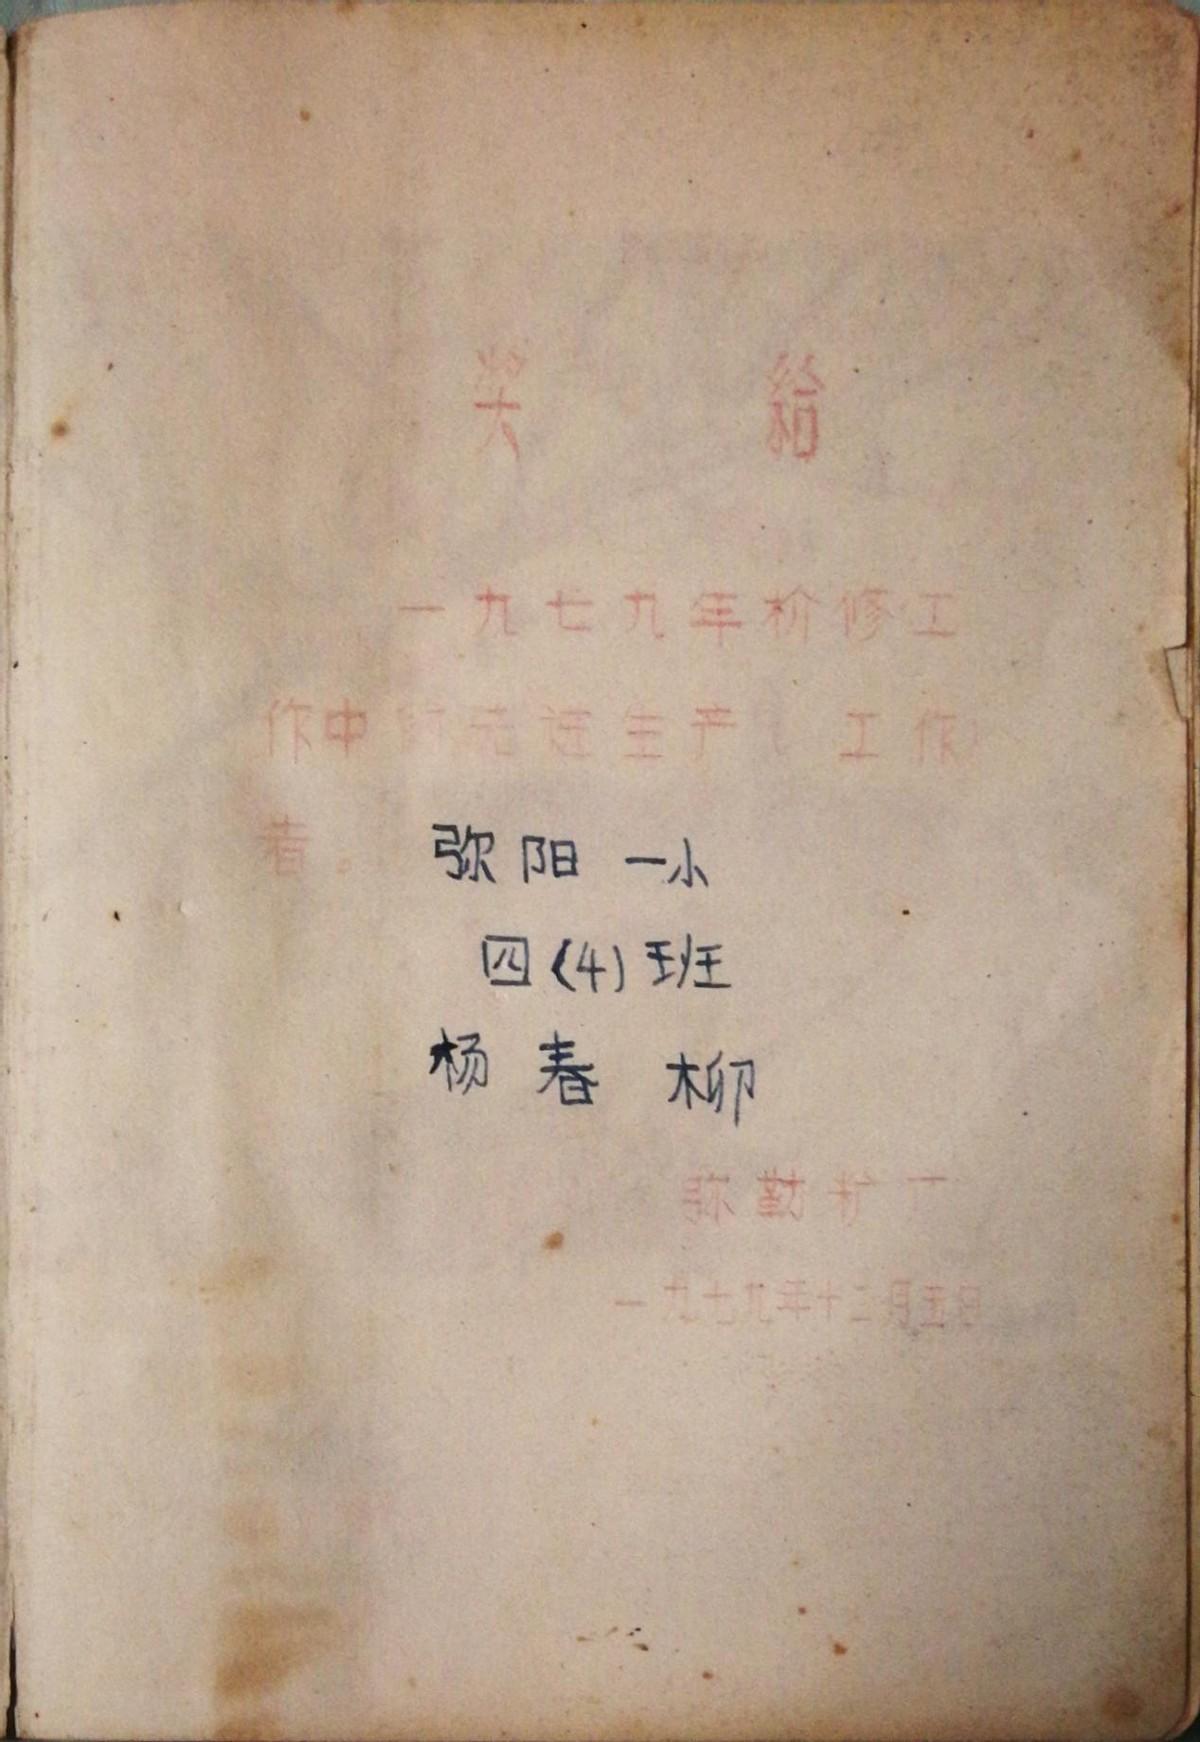 奖 给
一九七九年检修工
作中的先进生产(工作)
者。
弥阳一小
四(4)班
杨春柳
弥勒扩厂
一九七九年十二月五日